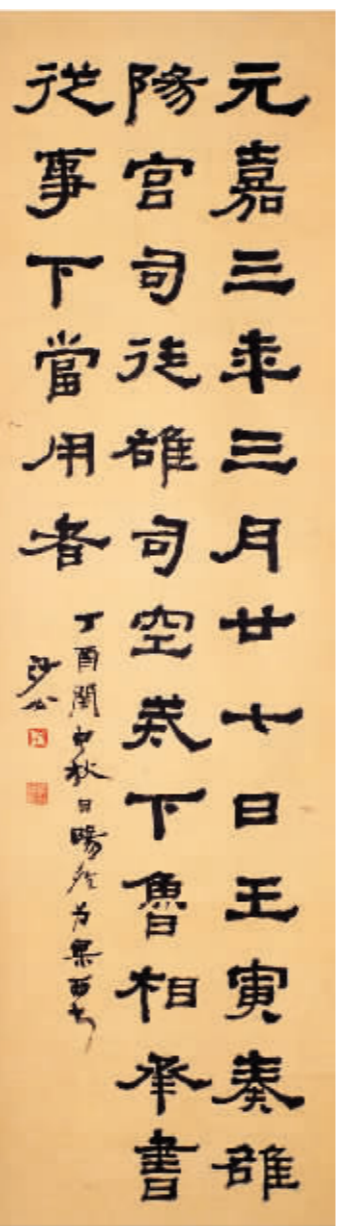 元嘉三年三月廿七日壬寅奏雒
陽宮司徒雄司空戒下魯相承書
從事下當用者
丁酉閏中秋日暘
沙公